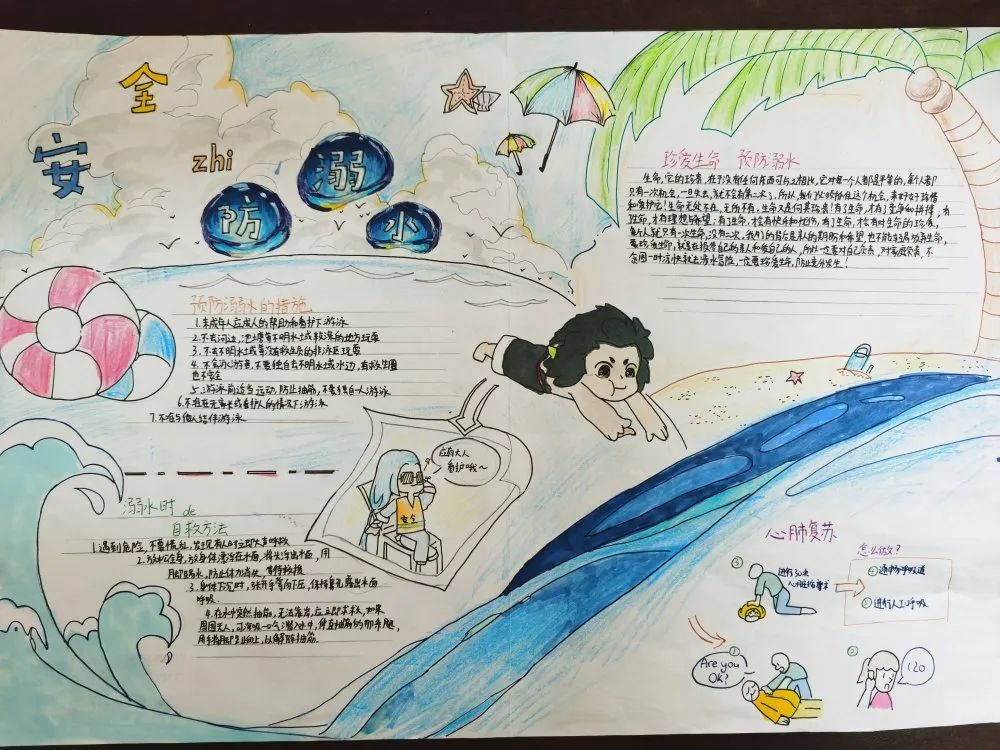 安全
zhi
防溺水
珍爱生命 预防溺水
生命,它的珍贵,在于没有任何东西可与之相比,它对每一个人都是平等的,每个人都
只有一次机会,一旦失去,就不会有第二次了,所以,我们必须抓住这个机会,来好好珍惜
和爱护它!生命无处不在,无所不有,生命又是何其珍贵!有了生命,才有了竞争和拼搏;有
生命,才有理想与希望;有了生命,才会有快乐和忧伤,有了生命,才会有对生命的珍爱,
每个人就只有一次生命,没有二次,我们的背后是亲人的期盼和希望,也不能轻易放弃生命,
要珍爱生命,就是在珍爱自己的亲人和爱自己的人,所以一定要对自己负责,对家庭负责,不
贪图一时凉快就去涉水冒险,一定要珍爱生命,防止意外发生!
预防溺水的措施
1.未成年人应成人的帮助和看护下游泳
2.不去河边,池塘等不明水土或较深的地方玩耍
3.不去不明水土或等没有救生员的非泳区玩耍
4.不会游泳者,不要独自去不明水域水边,有救生圈
也不安全
5.游泳前适当运动,防止抽筋,不要独自一人游泳
6.不在在无家长或看护人的情况下游泳
7.不在与他人结伴游泳
应有大人
看护哦~
安全
溺水时
de
自救方法
1.遇到危险,不要慌乱,发现有人时立即大声呼救
2.放松全身,让身体漂浮在水面,将头浮出水面,用
脚踢水,防止体力丧失,等待救援
3.身体下沉时,张开手掌向下压,保持鼻孔露出水面
呼吸.
4.在水中突然抽筋,无法靠岸,应立即求救,如果
周围无人,可深吸一口气潜入水中,伸直抽筋的那条腿,
用手将脚趾向上,以解除抽筋.
心肺复苏
怎么做?
③
进行30次
心脏按摩
④通畅呼吸道
⑤进行人工呼吸
①
Are you
OK?
②
120